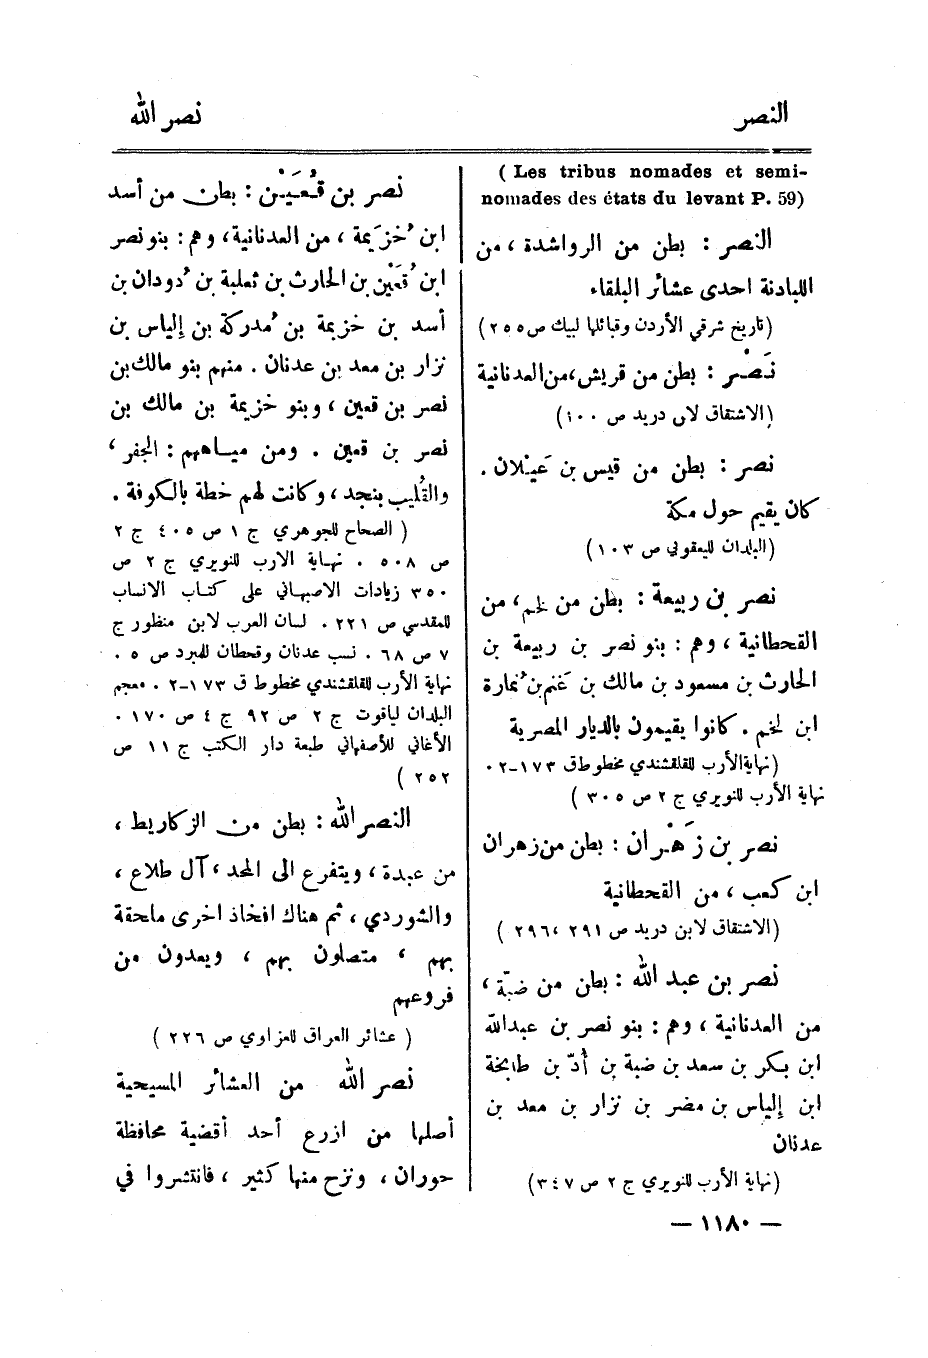 النصر
نصر الله
( Les tribus nomades et semi-
nomades des états du levant P. 59)
النصر : بطن من الرواشدة ، من
اللبادنة احدى عشائر البلقاء
(تاريخ شرقي الأردن وقبائلها لبيك ص ٢٥٥)
نَصْر : بطن من قريش، من العدنانية
(الاشتقاق لابن دريد ص ١٠٠)
نصر : بطن من قيس بن عَيلان .
كان يقيم حول مكة
(البلدان لليعقوبي ص ١٠٣)
نصر بن ربيعة : بطن من لخم، من
القحطانية ، وهم : بنو نصر بن ربيعة بن
الحارث بن مسعود بن مالك بن غَنم بن نُمارة
ابن لخم . كانوا يقيمون بالديار المصرية
(نهاية الأرب للقلقشندي مخطوط ق ١٧٣-٢ .
نهاية الأرب للنويري ج ٢ ص ٣٠٥ )
نصر بن زَهْران : بطن من زهران
ابن كعب ، من القحطانية
(الاشتقاق لابن دريد ص ٢٩١ ، ٢٩٦ )
نصر بن عبد الله : بطن من ضبّة ،
من العدنانية ، وهم : بنو نصر بن عبدالله
ابن بكر بن سعد بن ضبة بن أُدّ بن طابخة
ابن إلياس بن مضر بن نزار بن معد بن
عدنان
(نهاية الأرب للنويري ج ٢ ص ٣٤٧)
نصر بن قُعَيْن : بطن من أسد
ابن خُزَيمة ، من العدنانية ، وهم : بنو نصر
ابن قُعَيْن بن الحارث بن ثعلبة بن دُودان بن
أسد بن خزيمة بن مُدركة بن إلياس بن
نزار بن معد بن عدنان . منهم بنو مالك بن
نصر بن قعين ، وبنو خزيمة بن مالك بن
نصر بن قعين . ومن مياههم : الجفر ،
والقُليب بنجد ، وكانت لهم خطة بالكوفة .
( الصحاح للجوهري ج ١ ص ٤٠٥ ج ٢
ص ٥٠٨ . نهاية الارب للنويري ج ٢ ص
٣٥٠ زيادات الاصبهاني على كتاب الانساب
للمقدسي ص ٢٢١ . لسان العرب لابن منظور ج
٧ ص ٦٨ . نسب عدنان وقحطان للمبرد ص ٥ .
نهاية الأرب للقلقشندي مخطوط ق ١٧٣-٢ . معجم
البلدان لياقوت ج ٢ ص ٩٢ ج ٤ ص ١٧٠ .
الأغاني للأصفهاني طبعة دار الكتب ج ١١ ص
٢٥٢ )
النصر الله : بطن من الزكاريط ،
من عبدة ، ويتفرع الى المحد ، آل طلاع ،
والشوردي ، ثم هناك افخاذ اخرى ملحقة
بهم ، متصلون بهم ، ويعدون من
فروعهم
( عشائر العراق للعزاوي ص ٢٢٦ )
نصر الله من العشائر المسيحية
أصلها من ازرع أحد أقضية محافظة
حوران ، ونزح منها كثير ، فانتشروا في
— ١١٨٠ —